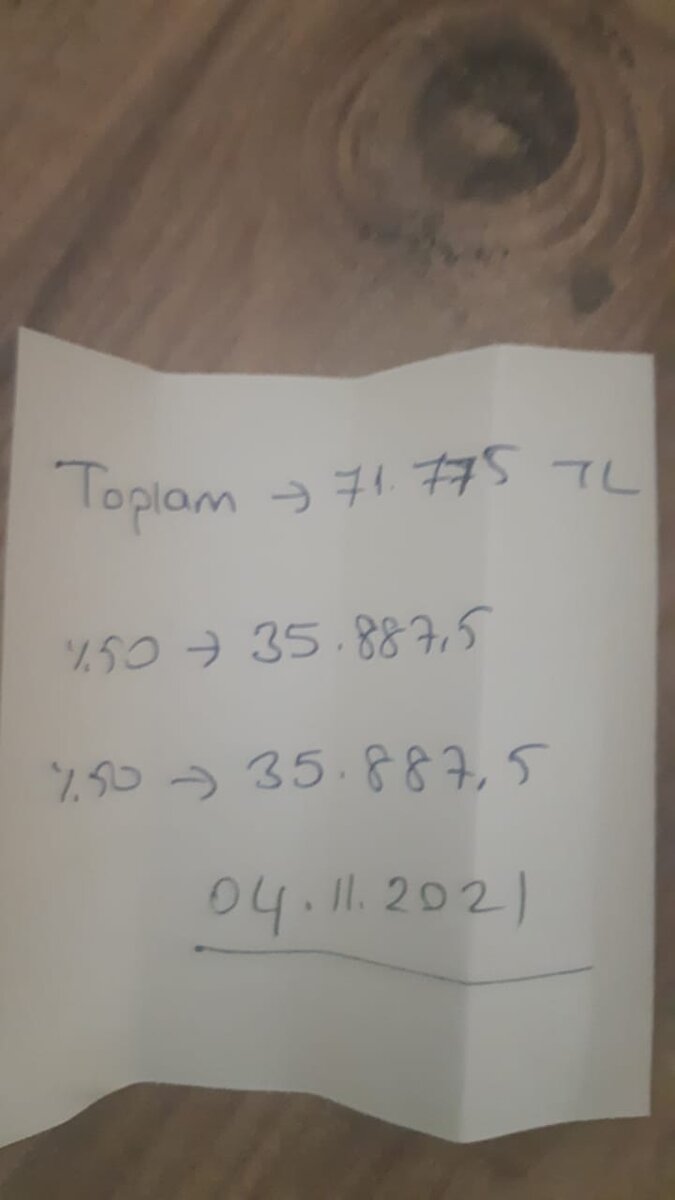 Toplam → 71.775 TL
%50 → 35.887,5
%50 → 35.887,5
04.11.2021